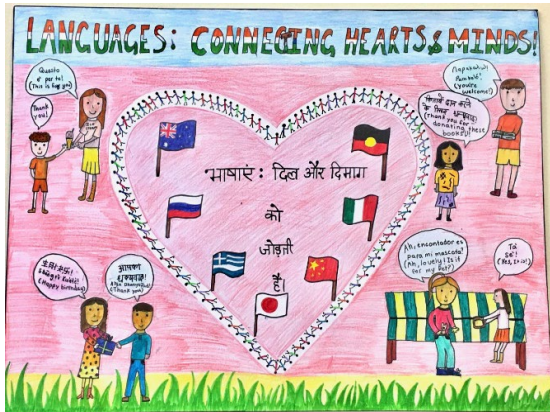 LANGUAGES: CONNECTING HEARTS & MINDS!
Questo
è per te!
(This is for you)
Thank
you!
(You're
welcome!)
के लिए धन्यवाद
(Thank you for
donating these
books!)
भाषाएं : दिल और दिमाग
को
जोड़ती
हैं।
(Happy birthday!)
आपका
(Thank you)
Ah, encantador es
para mi mascota?
(Ah, lovely! Is it
for my pet?)
Tá
sé!
(Yes, it is!)